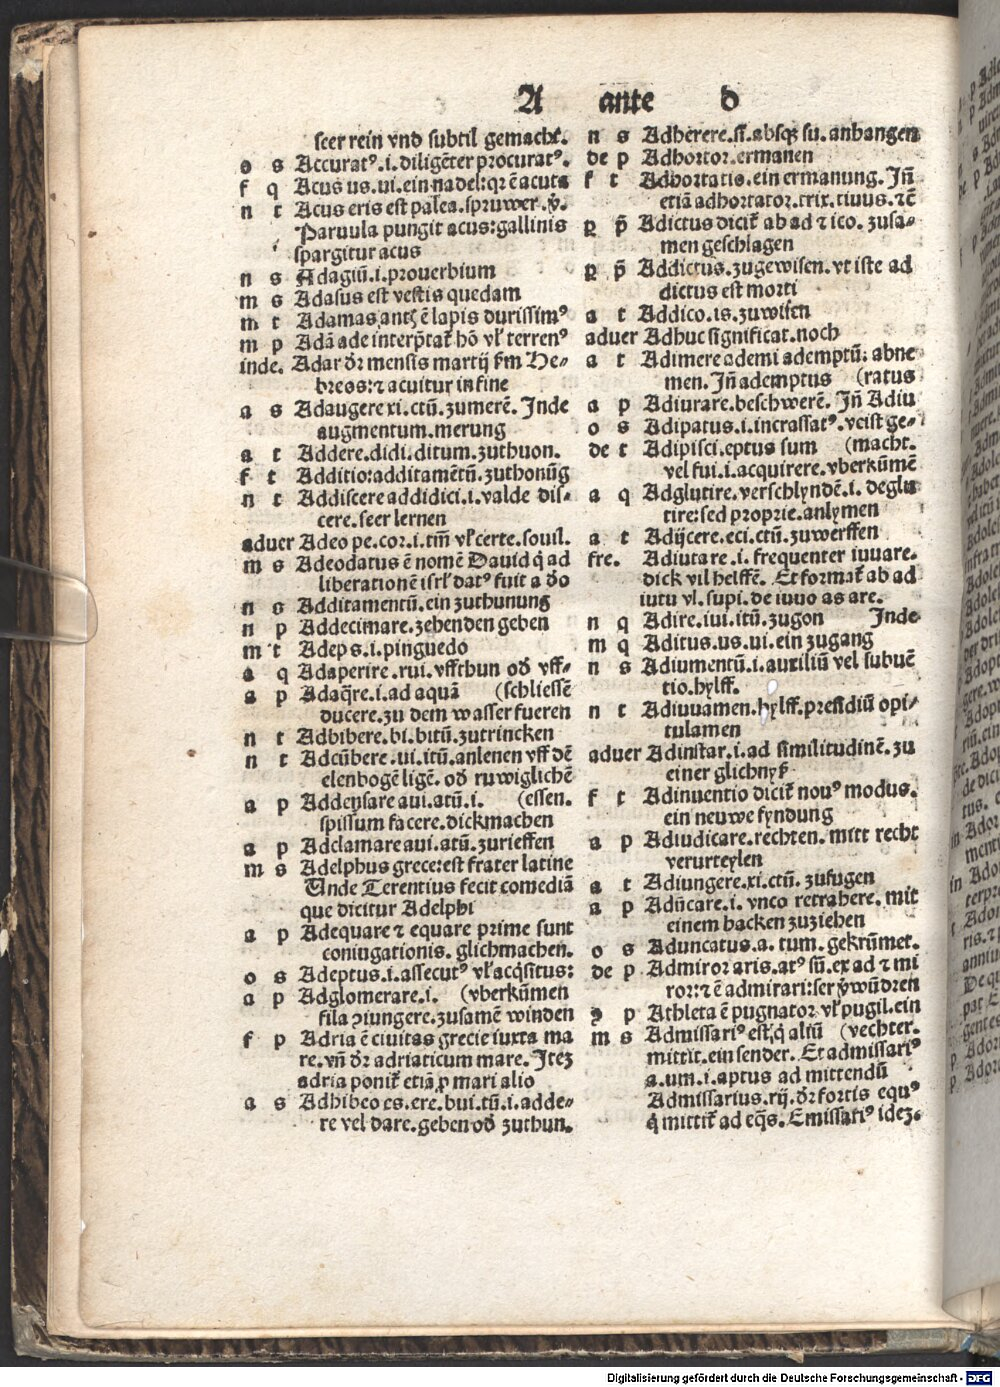 A ante d
seer rein vnd subtil gemacht.
o s Accuratꝰ.i.diligēter procuratꝰ.
f q Acus us.ui.ein nadel:qr ē acuta
n t Acus eris est palea.spruwer.v̄.
Paruula pungit acus:gallinis
spargitur acus
n s Adagiū.i.prouerbium
m s Adasus est vestis quedam
m t Adamas antꝭ ē lapis durissimꝰ
m p Adā ade interp̄tat̄ hō vl̓ terrenꝰ
inde. Adar d̓r mensis martij s̓m He⸗
breos:⁊ acuitur in fine
a s Adaugere xi.ctū.zumerē. Inde
augmentum.merung
a t Addere.didi.ditum.zuthuon.
f t Additio:additamētū.zuthonūg
n t Addiscere addidici.i.valde dis⸗
cere.seer lernen
aduer Adeo pe.cor.i.tm̄ vl̓ certe.souil.
m s Adeodatus ē nomē Dauid q̓ ad
liberationē isrl̓ datꝰ fuit a d̓o
n s Additamentū.ein zuthunung
n p Addecimare.zehenden geben
m t Adeps.i.pinguedo
a q Adaperire.rui.vffthun od̓ vff⸗
a p Adaq̄re.i.ad aquā (schliessē
ducere.zu dem wasser fueren
n t Adbibere.bi.bitū.zutrincken
n t Adcūbere.ui.itū.anlenen vff dē
elenbogē ligē. od̓ ruwiglichē
a p Addensare aui.atū.i. (essen.
spissum facere.dickmachen
a p Adclamare aui.atū.zurieffen
m s Adelphus grece:est frater latine
Unde Terentius fecit comediā
que dicitur Adelphi
a p Adequare ⁊ equare prime sunt
coniugationis. glichmachen.
o s Adeptus.i.assecutꝰ vl̓ acq̓situs:
a p Adglomerare.i. (vberkūmen
fila ꝯiungere.zusamē winden
f p Adria ē ciuitas grecie iuxta ma
re.vn̄ d̓r adriaticum mare. Iteꝫ
adria ponit̄ etiā ꝓ mari alio
a s Adhibeo es.ere.bui.tū.i.adde⸗
re vel dare.geben od̓ zuthun.
n s Adherere.si.absqꝫ su.anhangen
de p Adhortor.ermanen
f t Adhortatis.ein ermanung. In̄
etiā adhortator.trix.tiuus.⁊c̄
ꝑ p̄ Adictus dicit̄ ab ad ⁊ ico. zusa⸗
men geschlagen
ꝑ p̄ Addictus.zugewisen.vt iste ad
dictus est morti
a t Addico.is.zuwisen
aduer Adhuc significat.noch
a t Adimere ademi ademptū: abne
men. In̄ ademptus (ratus
a p Adiurare.beschwerē. In̄ Adiu
o s Adipatus.i.incrassatꝰ.veist ge⸗
de t Adipisci.eptus sum (macht.
vel fui.i.acquirere.vberkūmē
a q Adglutire.verschlyndē.i. deglu
tire:sed proprie.anlymen
a t Adijcere.eci.ctū.zuwerffen
fre. Adiutare.i. frequenter iuuare.
dick vil helffē. Et format̄ ab ad
iutu vl.supi.de iuuo as are.
n q Adire.iui.itū.zugon Inde
m q Aditus.us.ui.ein zugang
n s Adiumentū.i.auxiliū vel subuē
tio.hylff.
n t Adiuuamen.hylff.presidiū opi⸗
tulamen
aduer Adinstar.i.ad similitudinē.zu
einer glichnyß
f t Adinuentio dicit̄ nouꝰ modus.
ein neuwe fyndung
a p Adiudicare.rechten. mitt recht
verurteylen
a t Adiungere.xi.ctū. zufugen
a p Adūcare.i. vnco retrahere. mit
einem hacken zuziehen
o s Aduncatus.a. tum. gekrūmet.
de p Admiror aris.atꝰ sū.ex ad ⁊ mi
ror:⁊ ē admirari:ser v̓wūdren
ꝯ p Athleta ē pugnator vl̓ pugil.ein
m s Admissariꝰ est q̓ aliū (vechter.
mittit.ein sender. Et admissariꝰ
a.um.i.aptus ad mittendū
Admissarius.rij.d̓r fortis equꝰ
q̓ mittit̄ ad eq̄s. Emissariꝰ ideꝫ.
Digitalisierung gefördert durch die Deutsche Forschungsgemeinschaft - DFG